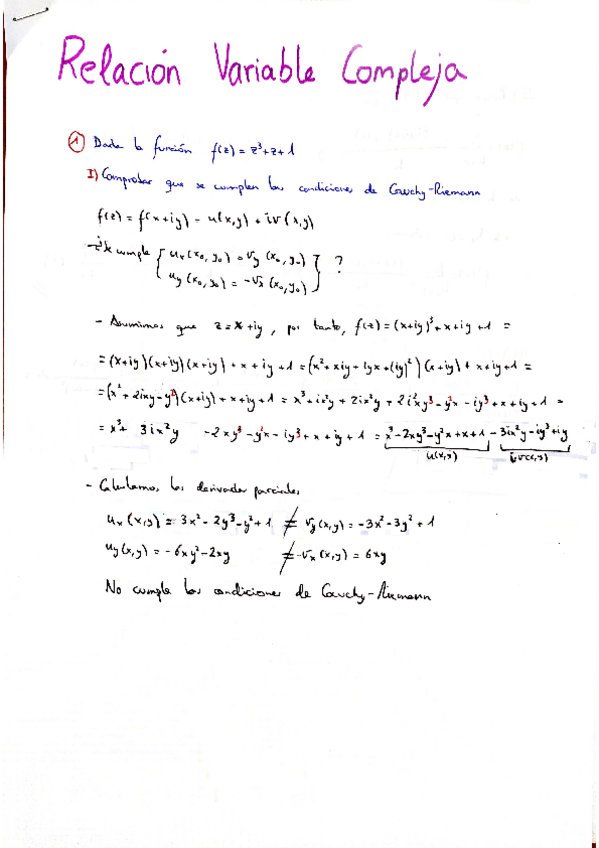 Relación Variable Compleja
① Dada la función f(z) = z³+z+1
I) Comprobar que se cumplen las condiciones de Cauchy-Riemann
f(z) = f(x+iy) = u(x,y) + iv(x,y)
¿Se cumple { uₓ(x₀,y₀) = v_y(x₀,y₀)
u_y(x₀,y₀) = -vₓ(x₀,y₀) } ?
- Asumimos que z = x+iy, por tanto, f(z) = (x+iy)³+x+iy+1 =
= (x+iy)(x+iy)(x+iy) + x + iy + 1 = (x²+xiy+iyx+(iy)²)(x+iy) + x+iy+1 =
= (x²+2ixy-y²)(x+iy)+x+iy+1 = x³+ix²y+2ix²y+2i²xy³-y²x-iy³+x+iy+1 =
= x³+ 3ix²y -2xy³-y²x-iy³+x+iy+1 = x³-2xy³-y²x+x+1 - 3ix²y-iy³+iy
u(x,y) iv(x,y)
- Calculamos las derivadas parciales
uₓ(x,y) = 3x²-2y³-y²+1 ≠ v_y(x,y) = -3x²-3y²+1
u_y(x,y) = -6xy²-2xy ≠ -vₓ(x,y) = 6xy
No cumple las condiciones de Cauchy-Riemann